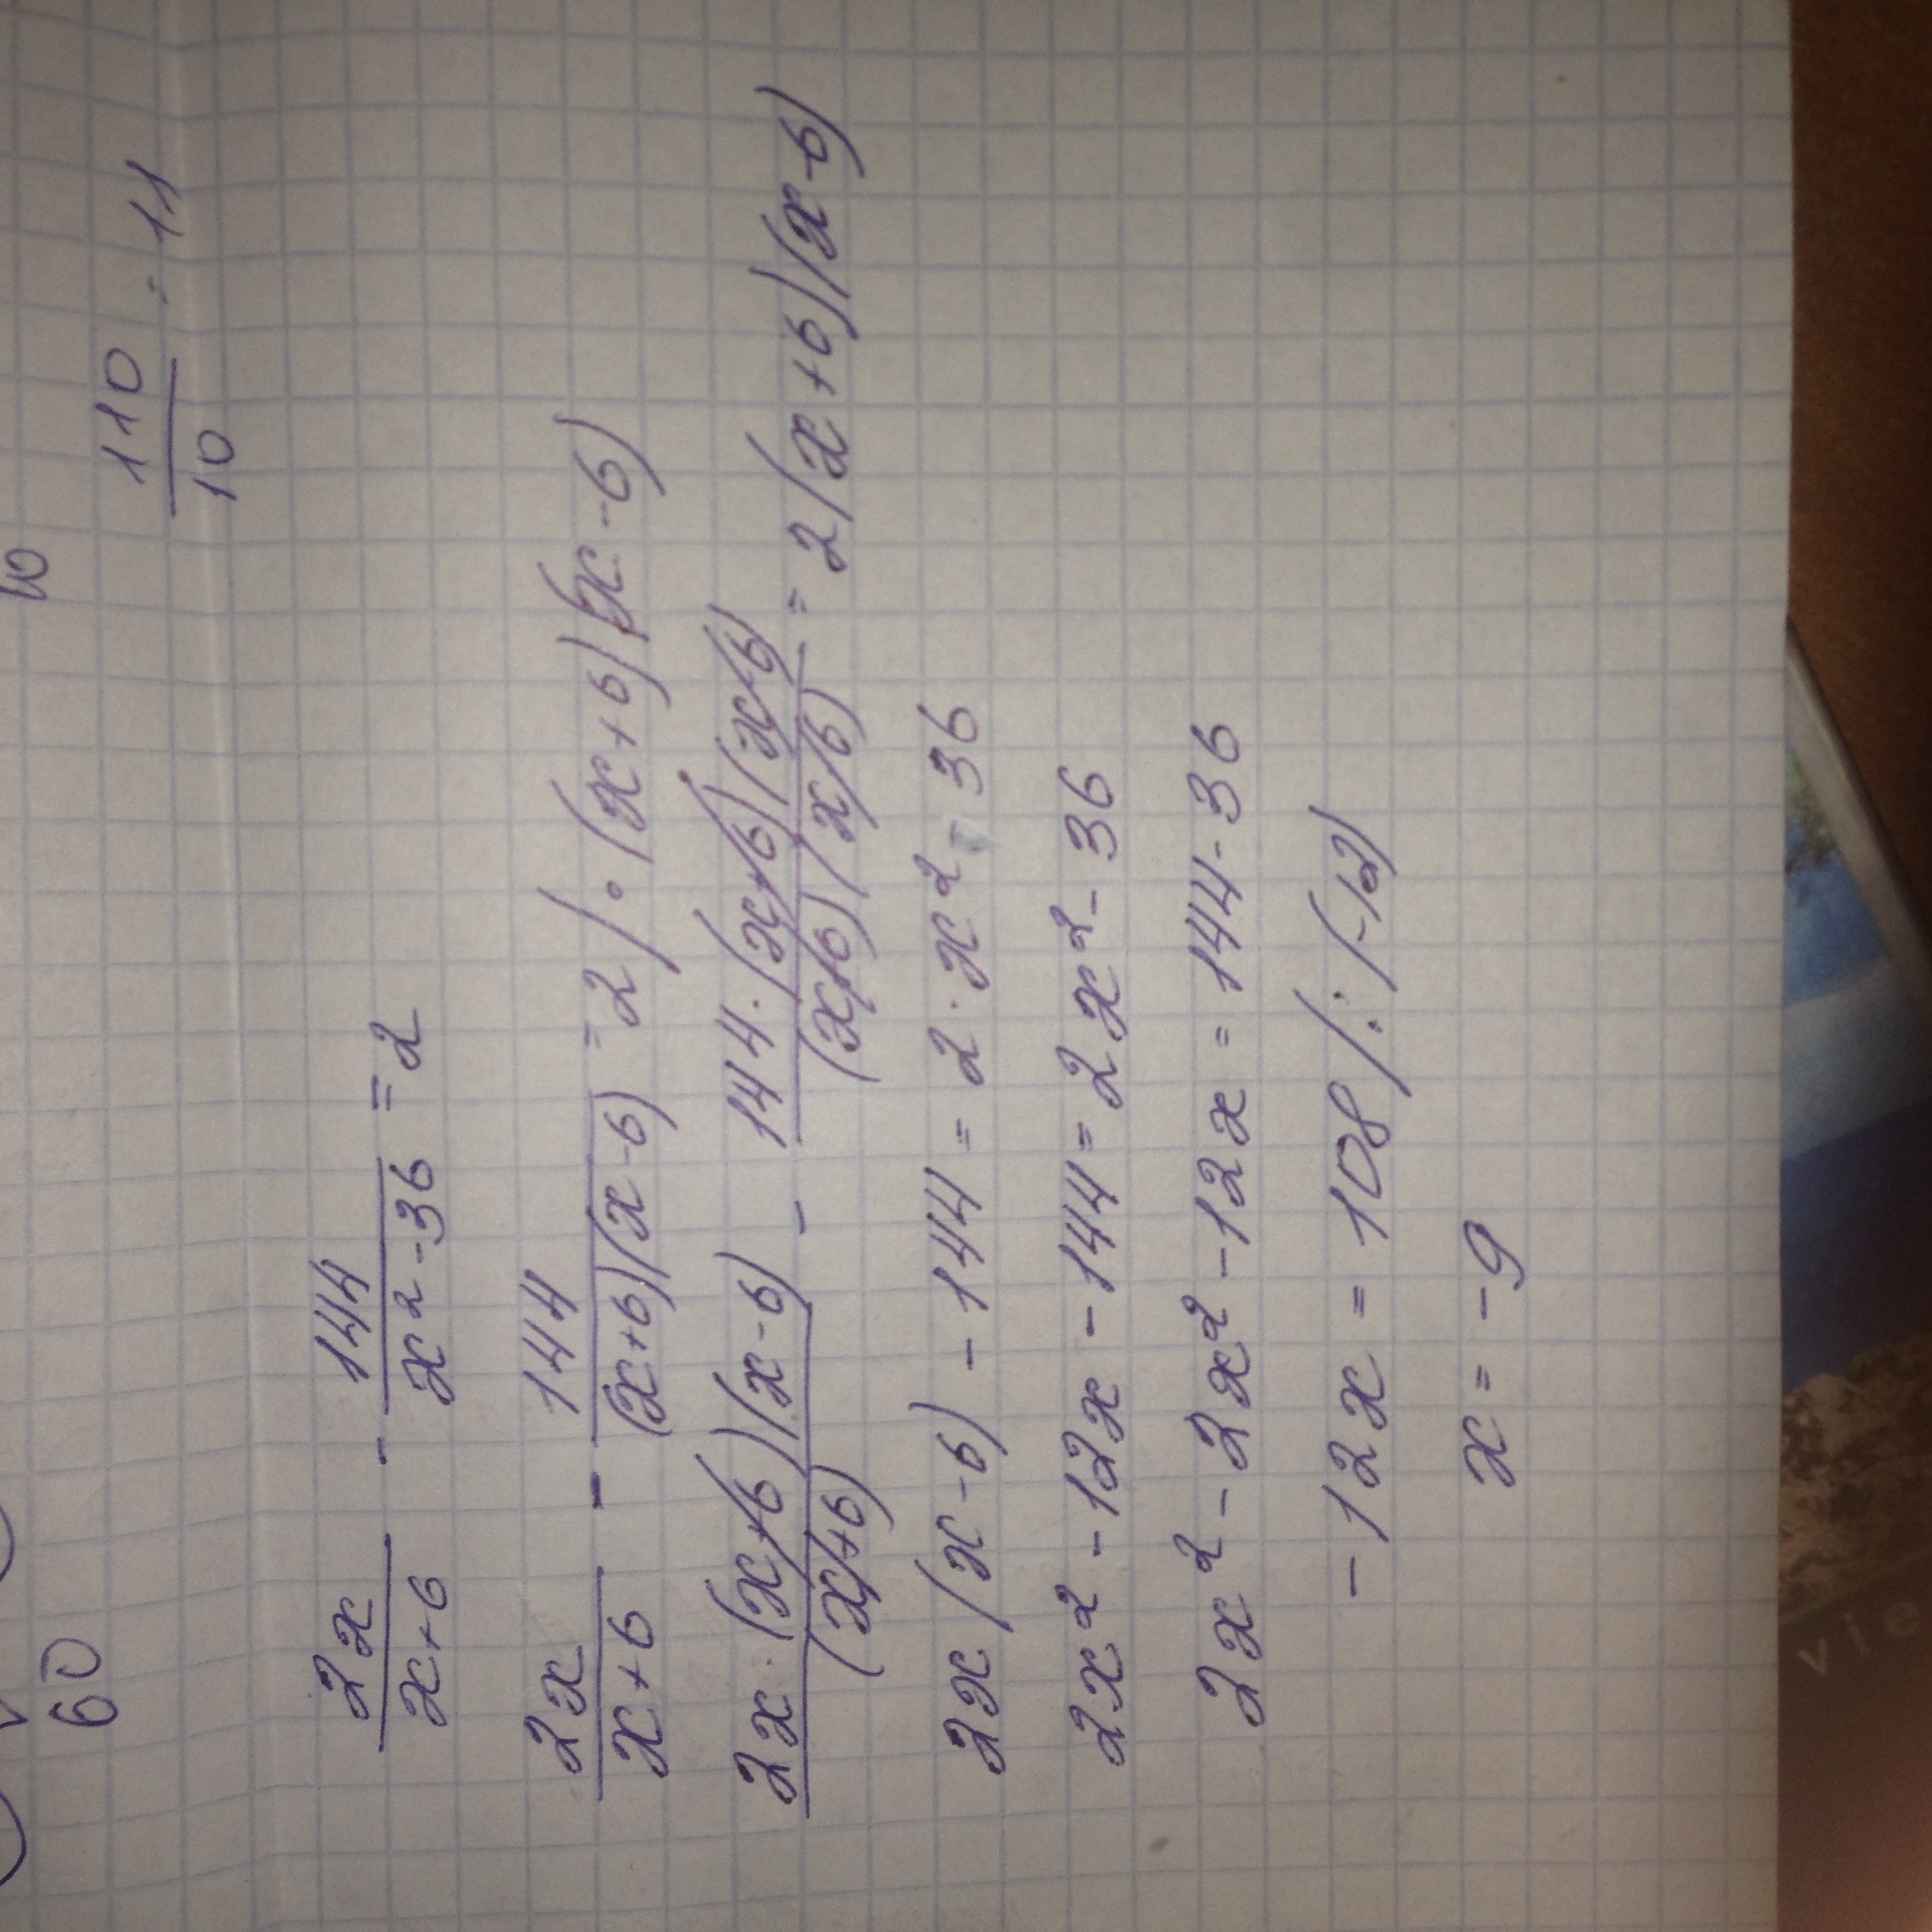 10
110/10 = 11
60
2x/(x+6) - 144/(x²-36) = 2
2x/(x+6) - 144/((x+6)(x-6)) = 2 /·(x+6)(x-6)
2x·(x+6)(x-6)/(x+6) - 144·(x+6)(x-6)/((x+6)(x-6)) = 2(x+6)(x-6)
2x(x-6) - 144 = 2·x² - 36
2x² - 12x - 144 = 2x² - 36
2x² - 2x² - 12x = 144 - 36
-12x = 108 /:(-12)
x = -9
vie